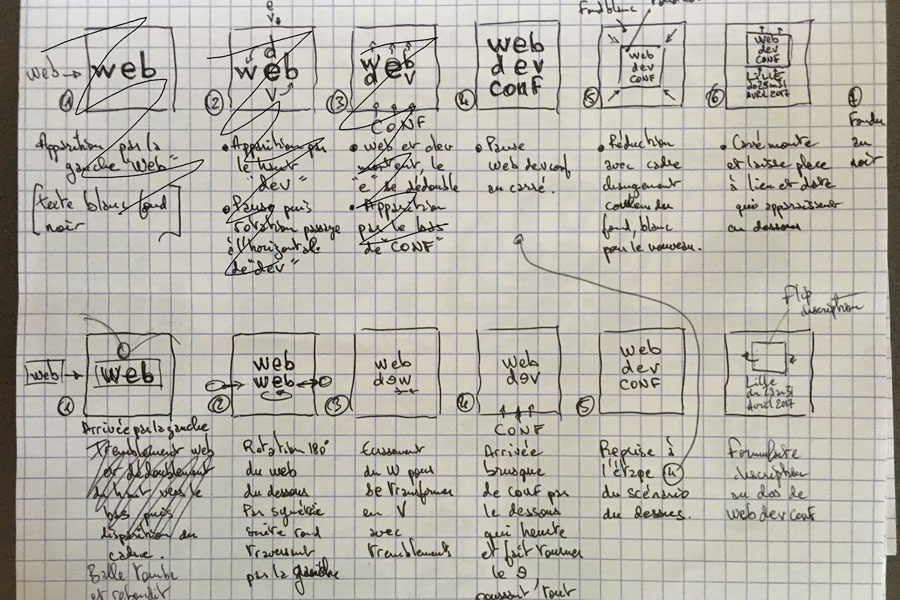 Fond blanc
web → web
e
v
d
web
v
web
d ev
CONF
web
dev
conf
web
dev
CONF
web
dev
CONF
LILLE
du 29 au 31
AVRIL 2017
1
2
3
4
5
6
7
Fondu
au
noir
Apparition par la
gauche "Web"
[texte blanc fond
noir]
• Apparition par
le haut
"dev"
• Pause puis
rotation passage
à l'horizontale
de "dev"
• web et dev
montent, le
e se dédouble
• Apparition
par le bas
de "CONF"
• Pause
web dev conf
au carré.
• Réduction
avec cadre
changement
couleur du
fond, blanc
pour le nouveau.
• Carré monte
et laisse place
à lieu et date
qui apparaissent
au dessous
Flip
description
web → web
web
web
web
dew
web
dev
CONF
web
dev
CONF
Lille
du 29 au 31
Avril 2017
1
2
3
4
5
Arrivée par la gauche
Tremblement web
et dédoublement
du haut vers le
bas puis
disparition du
cadre.
Balle tombe
et rebondit
Rotation 180°
du web
du dessous
Par symétrie
suite rond
traversant
par la gauche
Ecrasement
du W pour
se transformer
en V
avec
tremblements
Arrivée
brusque
de conf par
le dessous
qui heurte
et fait tourner
le e
poussant tout
Reprise à
l'étape 4
du scénario
du dessus.
description
au dos de
web dev conf